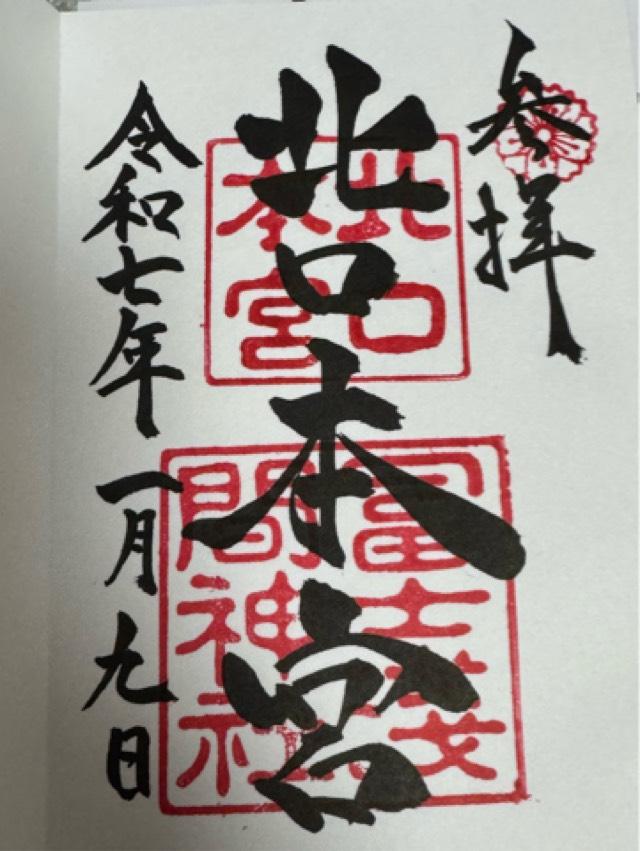 参拝
北口本宮
北口
本宮
冨士浅
間神社
令和七年一月九日